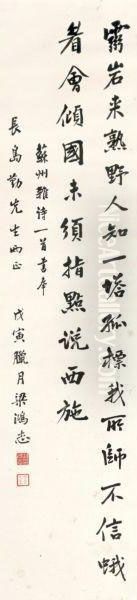 靈岩来熟野人知一塔孤標我所師不信蛾
眉會傾國未須指點説西施
蘇州雜诗一首書奉
長島勤先生兩正
戊寅臘月梁鴻志